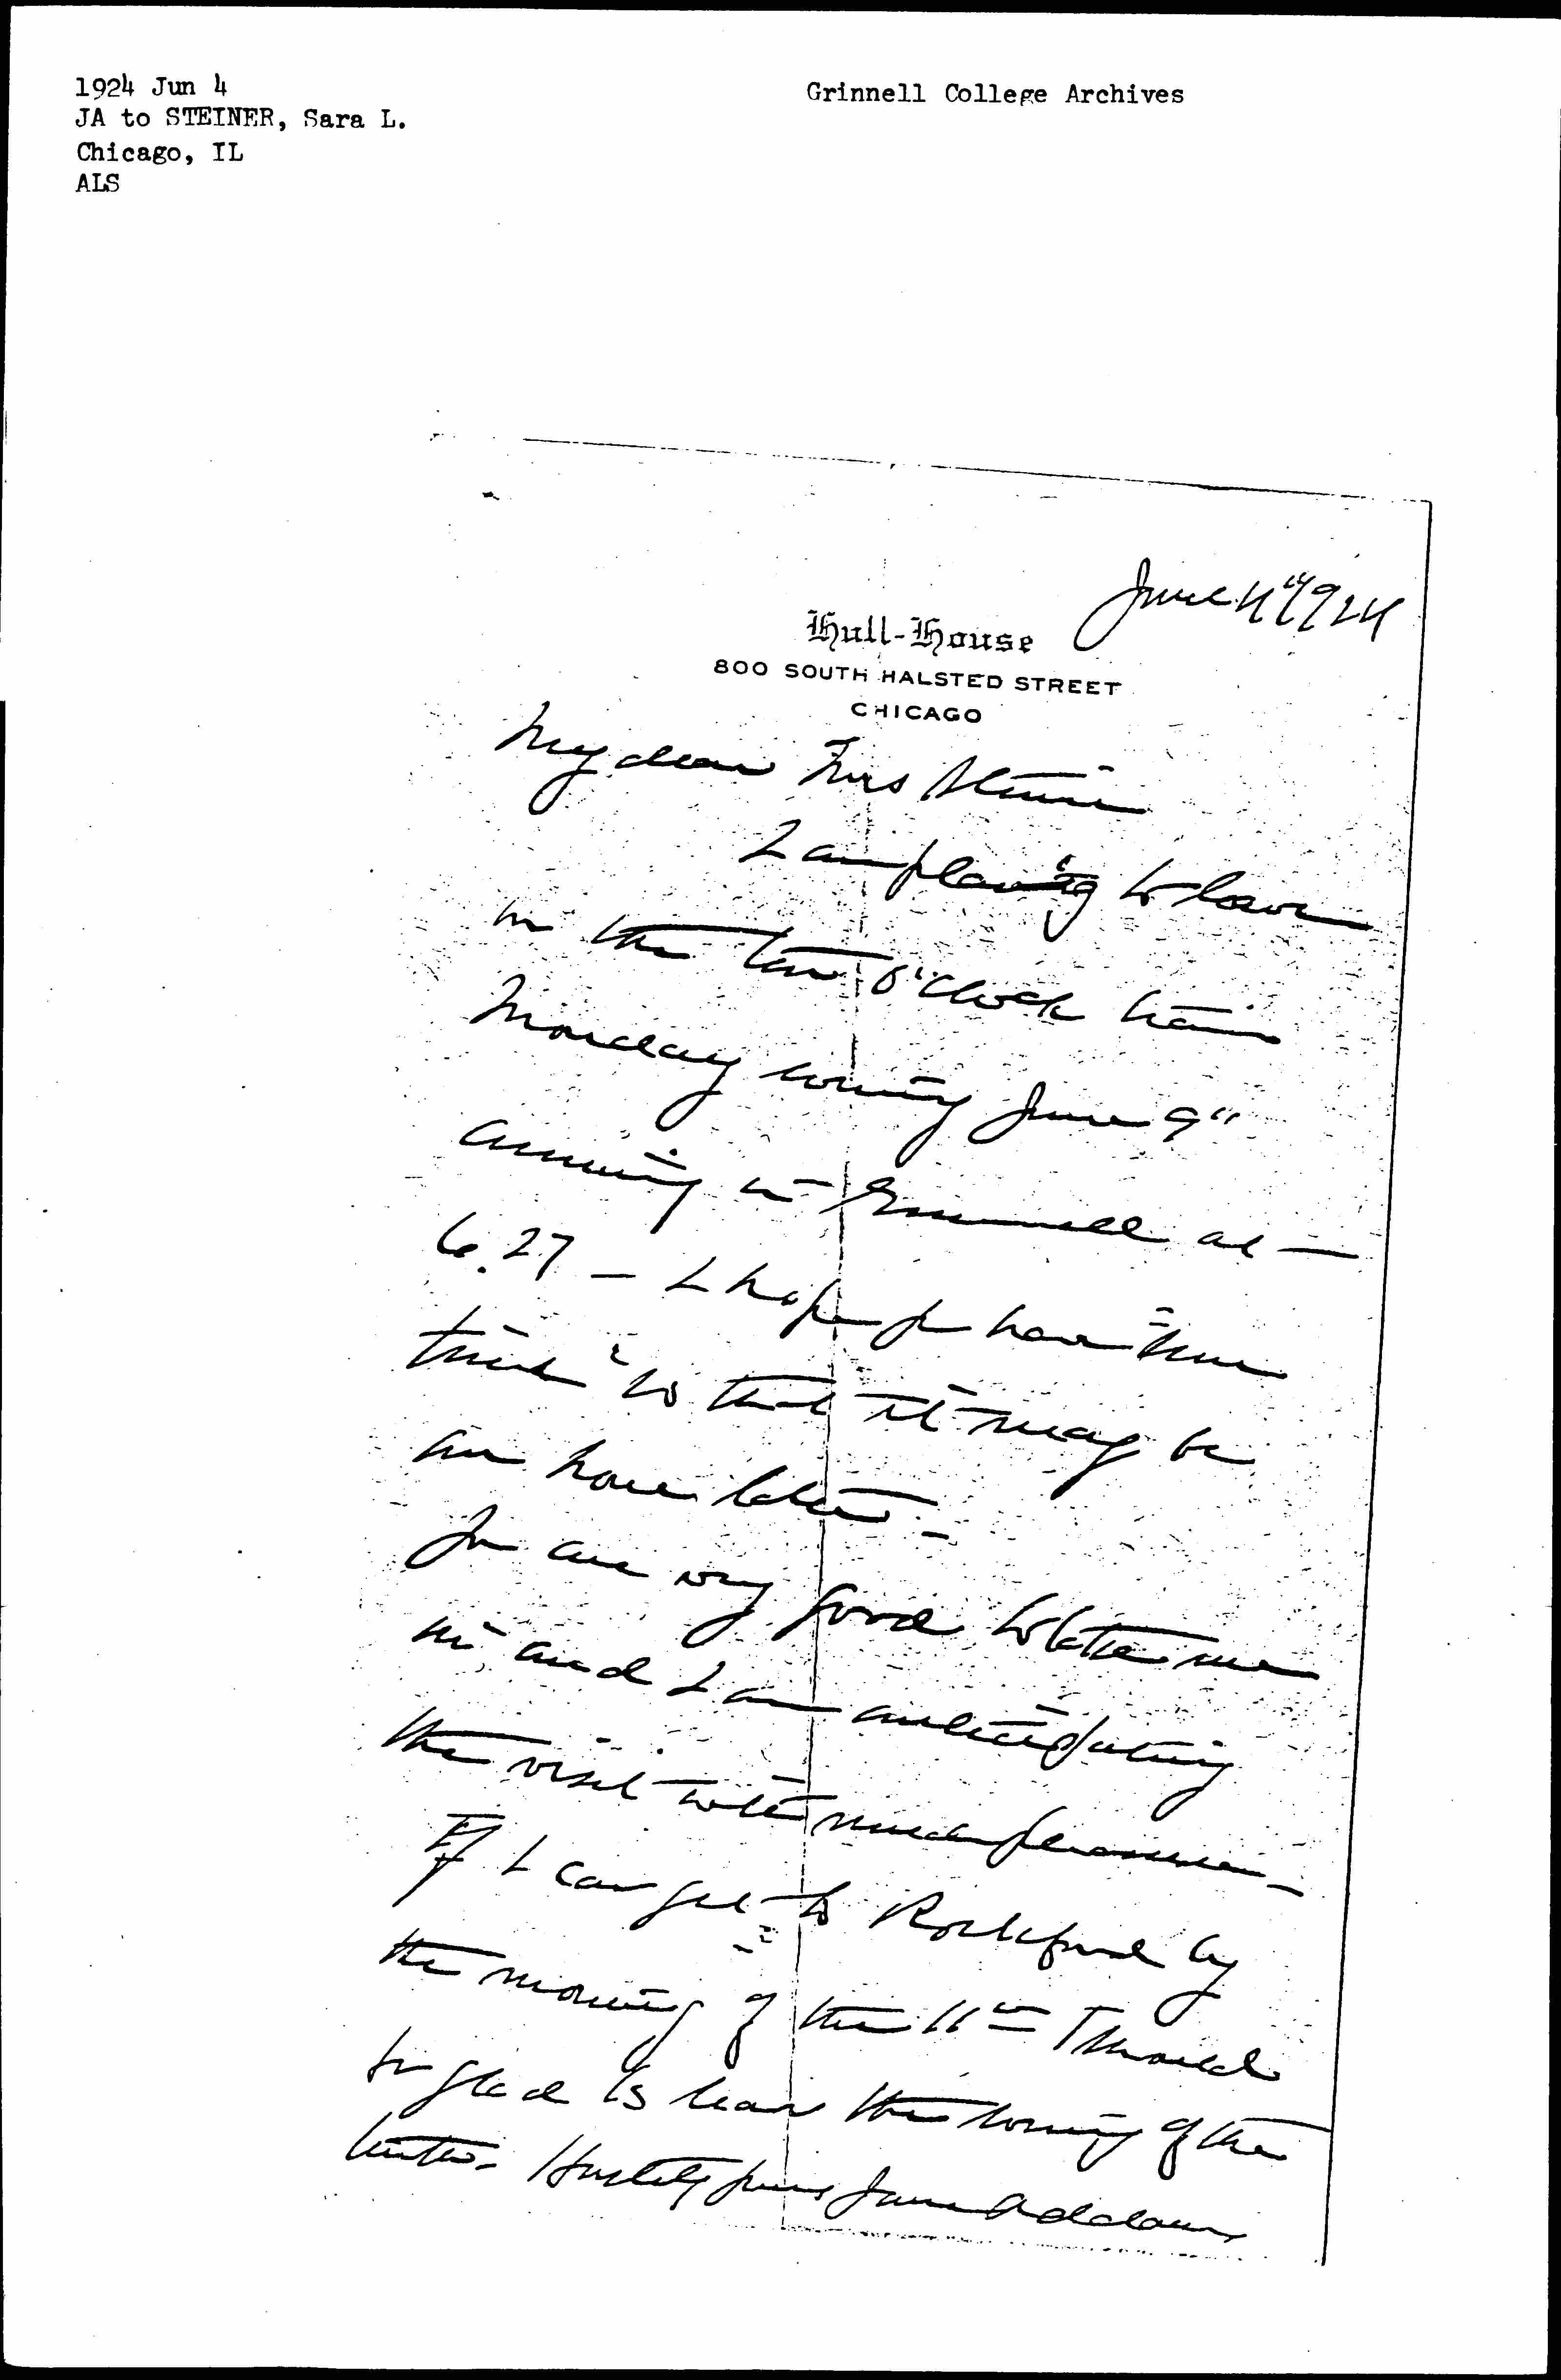 1924 Jun 4
JA to STEINER, Sara L.
Chicago, IL
ALS
Grinnell College Archives
June 4" 1924
Hull-House
800 SOUTH HALSTED STREET
CHICAGO
My dear Mrs Steiner
I am planing to leave
on the ten o'clock train
Monday morning June 9"
arriving in Grinnell at
6.27 — I hope you have "sun
time" so that it may be
an hour later —
You are very good to take me
in and I am anticipating
the visit with much pleasure —
If I can get to Rockford by
the morning of the 11" I should
be glad to leave the evening of the
tenth. Hastily yours Jane Addams